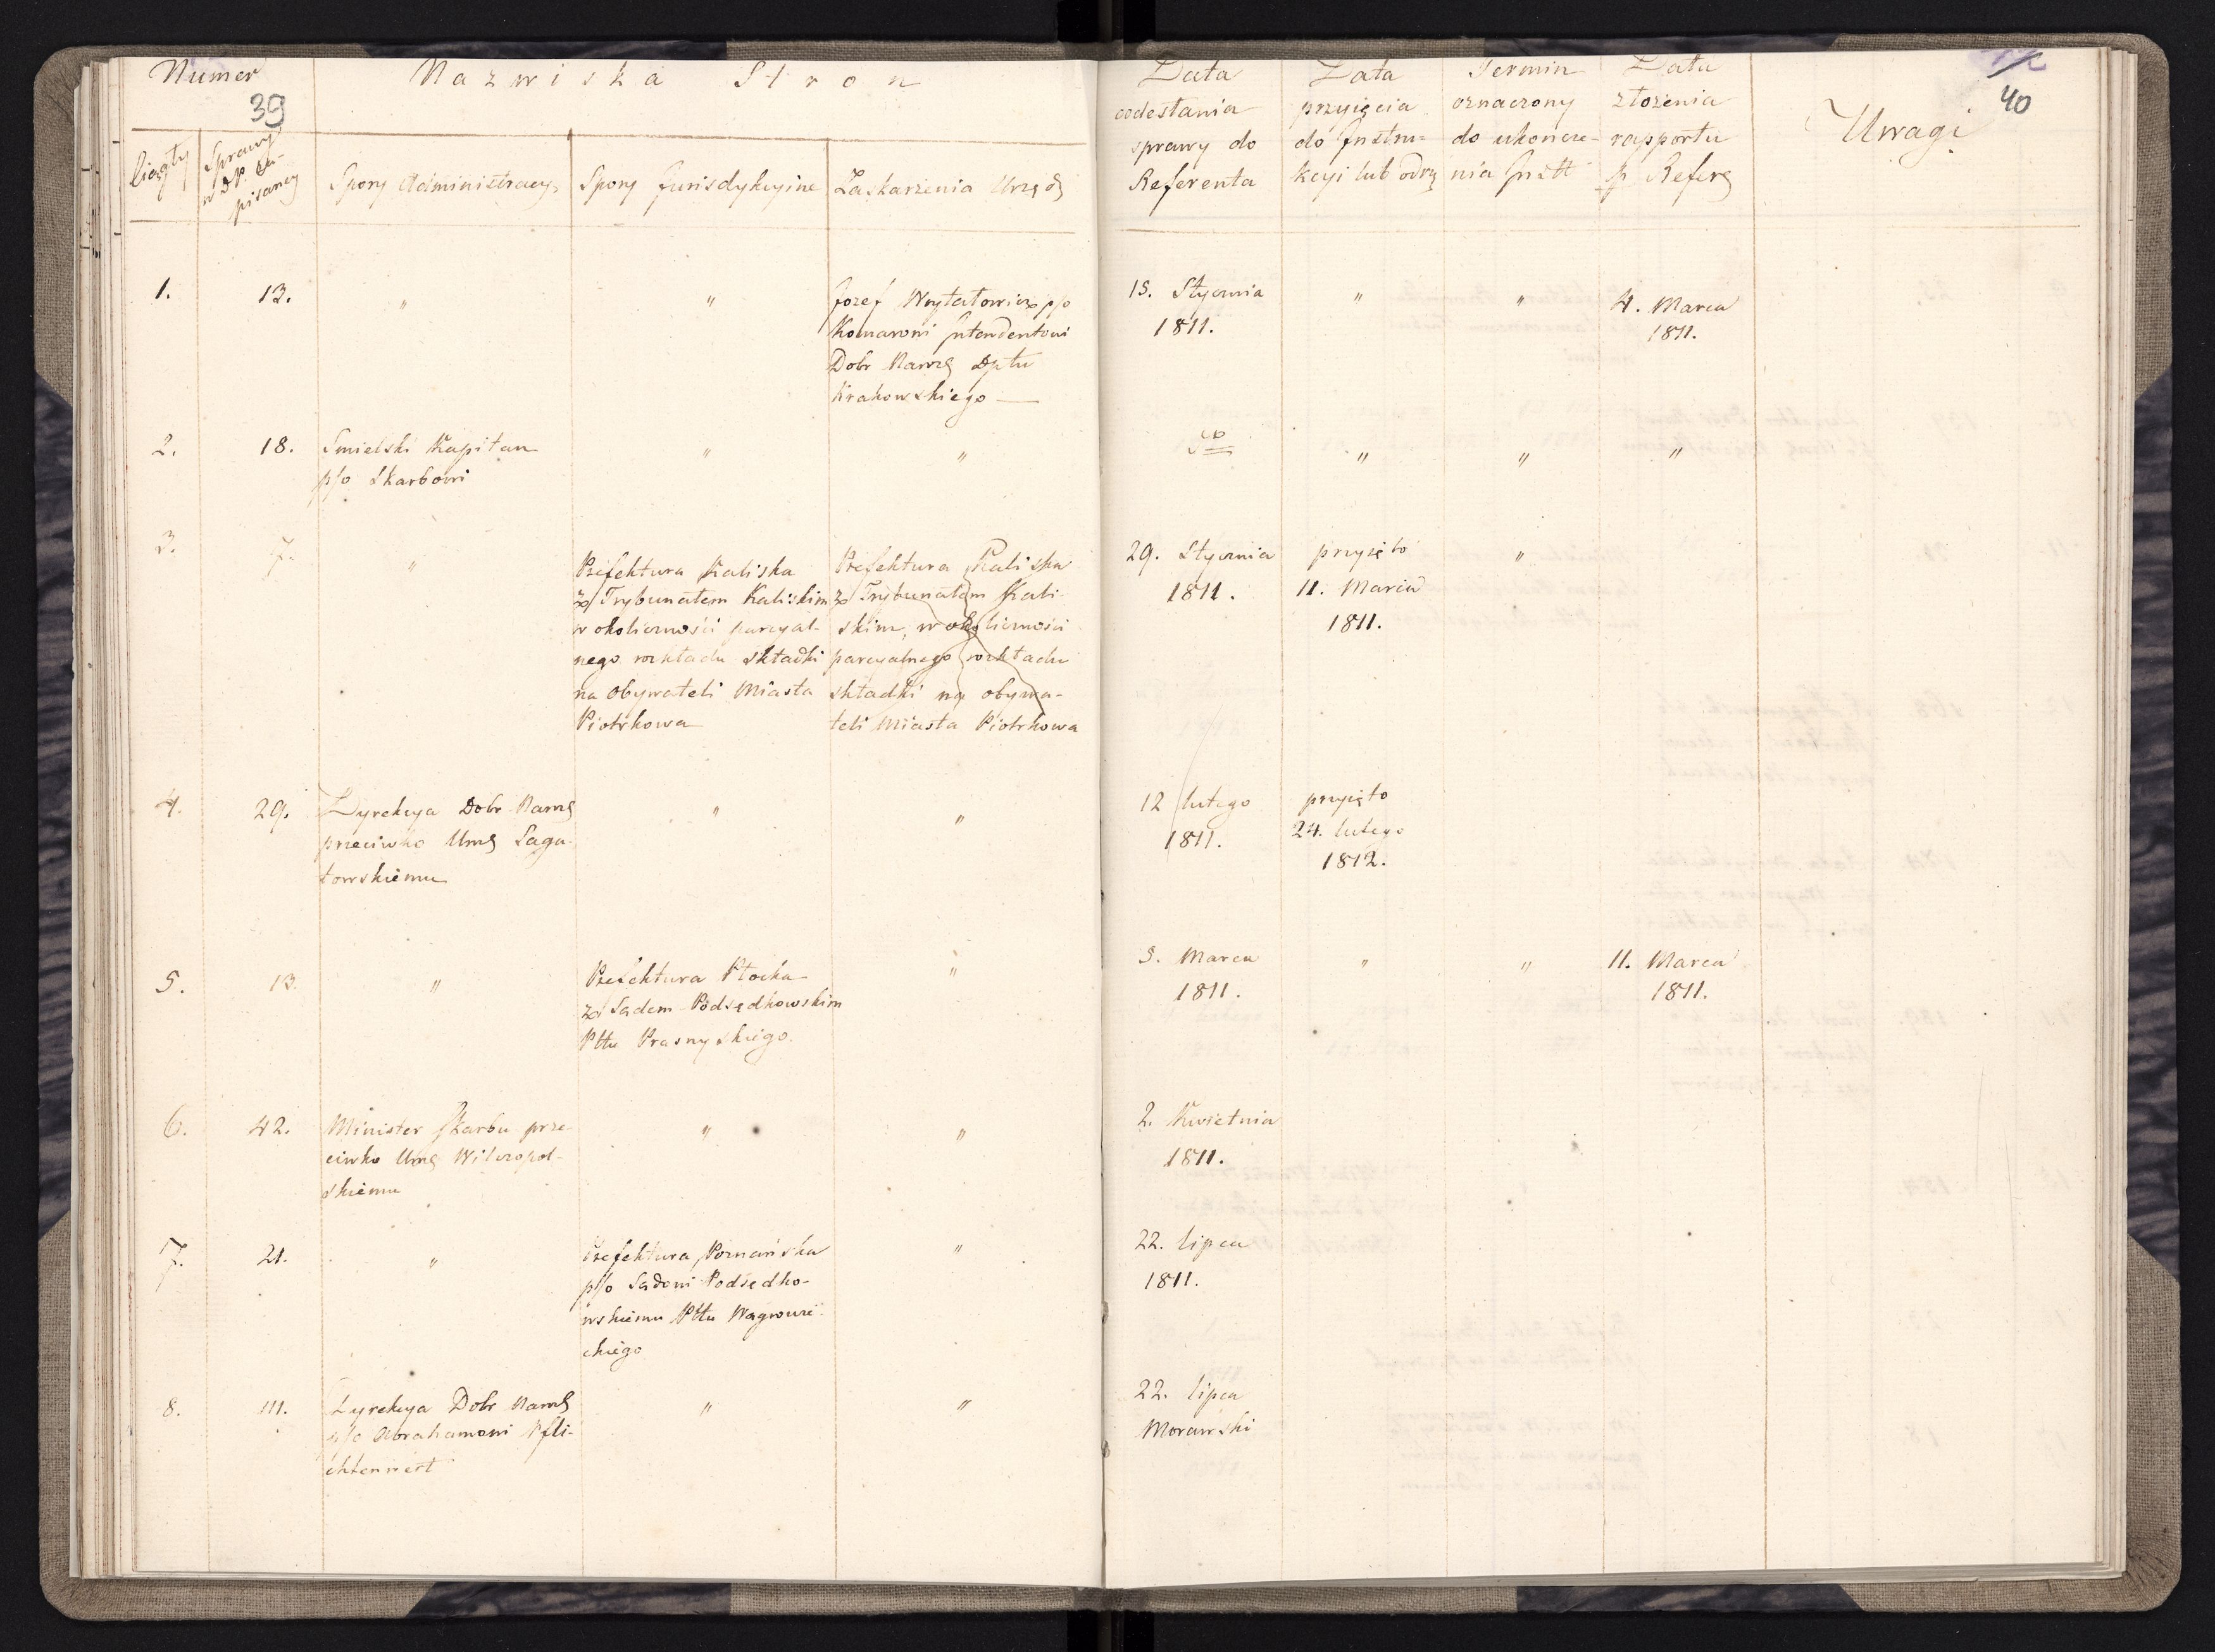 Numer
39
Nazwiska Stron
Ciągły
Sprawy
pisaney
Spory Administracy.
Spory Jurisdykcyine
Zaskarżenia Urzęd
Data
odesłania
sprawy do
Referenta
Data
przyięcia
do Instru=
kcyi lub odrz
Termin
oznaczony
do ukończe-
nia Instt
Data
złożenia
rapportu
p. Refer
Uwagi
40
1. 13. " "
Jozef Woytatowicz p/o
Komaroni Intendentowi
Dobr Narod Dptu
Krakowskiego —
15. Stycznia
1811.
" "
4. Marca
1811.
2. 18. Smielski Kapitan
p/o Skarbowi
" "
" " "
3. 7. "
Prefektura Kaliska
z Trybunałem Kaliskim
w okoliczności parcyal-
nego rozkładu składki
na Obywateli Miasta
Piotrkowa
Prefektura Kaliska
z Trybunałem Kali-
skim, w okoliczności
parcyalnego rozkładu
składki na obywa-
teli Miasta Piotrkowa
29. Stycznia
1811.
przyięto
11. Marca
1811.
"
4. 29. Dyrekcya Dobr Narod
przeciwko Urod Saga-
towskiemu
" "
12 lutego
1811.
przyięto
24. lutego
1812.
5. 13. "
Prefektura Płocka
z Sądem Podsędkowskim
Pttu Prasnyskiego.
"
3. Marca
1811.
" "
11. Marca
1811.
6. 42. Minister Skarbu prze-
ciwko Urod Wilczopol-
skiemu
" "
2. Kwietnia
1811.
7. 21. "
Prefektura Poznańska
p/o Sądowi Podsędko-
wskiemu Pttu Wągrowie
ckiego
"
22. lipca
1811.
8. 111. Dyrekcya Dobr Narod
p/o Abrahamowi Pfli-
chtenwert
" "
22. lipca
Morawski